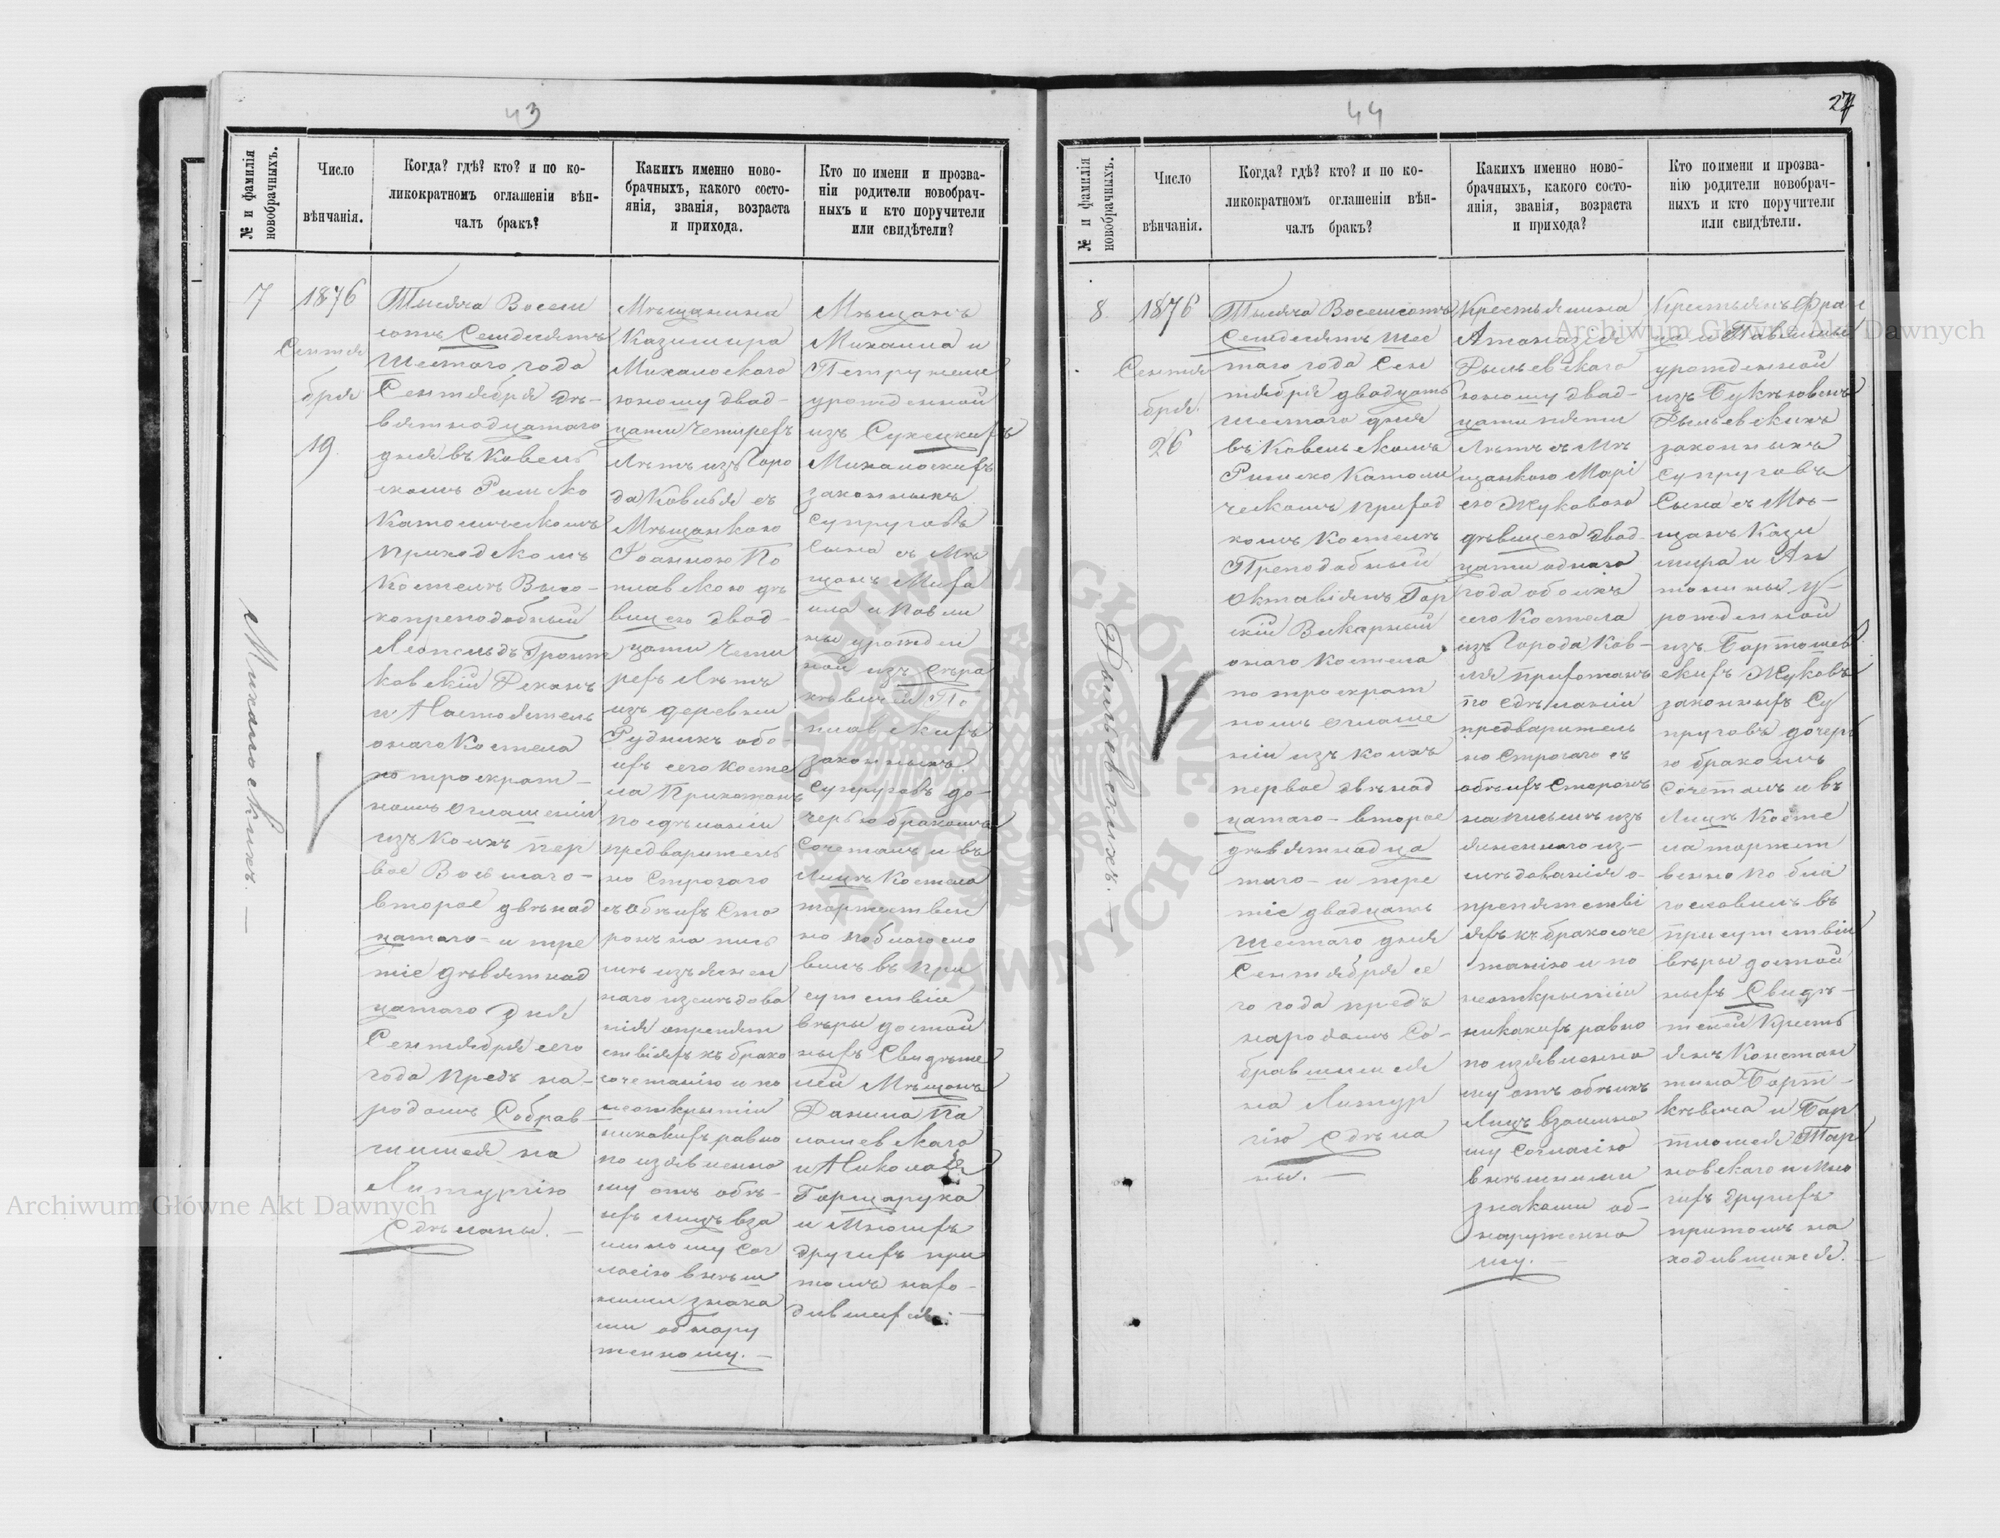 43
№ и фамилія
новобрачныхъ.
Число
вѣнчанія.
Когда? гдѣ? кто? и по ко-
ликократномъ оглашеніи вѣн-
чалъ бракъ?
Какихъ именно ново-
брачныхъ, какого состо-
янія, званія, возраста
и прихода.
Кто по имени и прозва-
ніи родители новобрач-
ныхъ и кто поручители
или свидѣтели?
7
Михаловскихъ. —
1876
Сентя
бря
19.
Тысяча Восем
сотъ Семдесятъ
Шестаго года
Сентября дѣ-
вятнадцатаго
дня въ Ковель
скомъ Римско
Католическомъ
приходскомъ
Костелѣ Высо-
копреподобный
Леопольдъ
ковскій Деканъ
и Настоятель
онаго Костела
по троекрат-
номъ оглашеніи
изъ коихъ пер
вое Восьмаго -
второе двѣнад
цатаго - и тре
тіе дѣвятнад
цатаго дня
Сентября сего
года предъ на-
родомъ Собрав-
шимся на
Литургію
Сдѣланы. —
Мѣщанина
Казимира
Михаловскаго
юношу двад-
цати четирехъ
Лѣтъ изъ Горо
да Ковеля съ
Мѣщанкою
Іоанною По
плавскою дѣ
вицею двад-
цати Чети
рехъ Лѣтъ
изъ деревни
Рудникъ обо-
ихъ сего Косте
ла Прихожанъ
по сдѣланіи
предваритель
но Строгаго
съ обѣихъ Сто
ронъ на пись
мѣ изъяснен
наго изслѣдова
нія опрепят
ствіяхъ къ брако
сочетанію и по
неоткрытіи
никакихъ равно
по изявленно
му отъ обѣ-
ихъ лицъ вза
имному Сог
ласію внѣш
ними знака
ми обнару
женному. —
Мѣщанъ
Михаила и
Петрунели
урожденной
изъ Сухецкихъ
Михаловскихъ
законныхъ
супруговъ
Сына съ Мѣ
щанъ Миха
ила и Павли
ны урожден
ной изъ Сѣра
кѣвичей По
плавскихъ
законныхъ
Супруговъ до-
черью бракомъ
Сочеталъ и въ
Лицѣ Костела
торжествен
но поблагосло
вилъ въ при
сутствіи
вѣры достой
ныхъ Свидѣте
лей Мѣщанъ
Данила Па
лашевскаго
и Николая
Гарщарука
и Многихъ
другихъ при
томъ нахо-
дившихся. —
44
27
№ и фамилія
новобрачныхъ.
Число
вѣнчанія.
Когда? гдѣ? кто? и по ко-
ликократномъ оглашеніи вѣн-
чалъ бракъ?
Какихъ именно ново-
брачныхъ, какого состо-
янія, званія, возраста
и прихода?
Кто по имени и прозва-
нію родители новобрач-
ныхъ и кто поручители
или свидѣтели.
8.
Рыльевскихъ. —
1876
Сентя
бря.
26
Тысяча Восемсотъ
Семдесятъ Шес
таго года Сен
тября двадцать
шестаго дня
въ Ковельскомъ
Римско Католи
ческомъ приход
скомъ Костелѣ
Преподобный
Октавіянъ Гор
скій Викарный
онаго Костела
по троекрат
номъ оглаше
ніи изъ коихъ
первое двѣнад
цатаго - второе
дѣвятнадца
таго - и тре
тіе двадцать
Шестаго дня
Сентября се
го года предъ
народомъ Со-
бравшимся
на Литур
гію Сдѣла
ны. —
Крестьянина
Атоназія
Рыльевскаго
юношу двад-
цати пяти
Лѣтъ съ Мѣ
щанкою Марі
ею Жуковою
дѣвицею двад-
цати одного
года обоихъ
сего Костела
изъ Города Ков-
ля прихожанъ
по сдѣланіи
предваритель
но Строгаго съ
обѣихъ Сторонъ
на письмѣ изъ
ясненнаго из-
слѣдованія о-
препятстві
яхъ къ бракосоче
танію и по
неоткрытіи
никакихъ равно
по изявленно
му отъ обѣихъ
Лицъ взаимно
му Согласію
внѣшними
знаками об-
наруженно
му. —
Крестьянъ Фран
ца и Павлины
урожденной
изъ
Рыльевскихъ
законныхъ
супруговъ
Сына съ Мѣ-
щанъ Кази
мира и Ан
тонины у-
рожденной
изъ Бартошев
скихъ Жуковъ
законныхъ Су
пруговъ дочерь
ю бракомъ
Сочеталъ и въ
Лицѣ Косте
ла торжест
венно побла
гословилъ въ
присутствіи
вѣры достой
ныхъ Свидѣ-
телей Кресть
янъ Констан
тина Барт-
кѣвича и Бар
тломея Тар
новскаго и Мно
гихъ другихъ
притомъ на
ходившихся. —
Archiwum Główne Akt Dawnych
Archiwum Główne Akt Dawnych
ARCHIWUM GŁÓWNE · AKT DAWNYCH ·